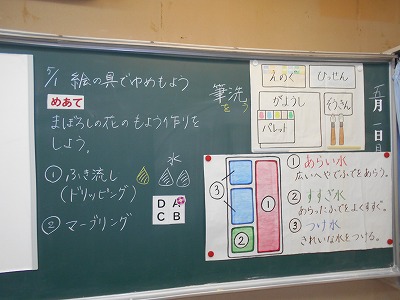 5/1 絵の具でゆめもよう
めあて
まぼろしの花のもよう作りを
しよう。
① ふき流し
(ドリッピング)
水
D A
C B
② マーブリング
筆洗
を う
えのぐ
ひっせん
がようし
ぞうきん
パレット
五月一日
③
①
②
① あらい水
広いへやでふでをあらう。
② すすぎ水
あらったふでをよくすすぐ。
③ つけ水
きれいな水をつける。